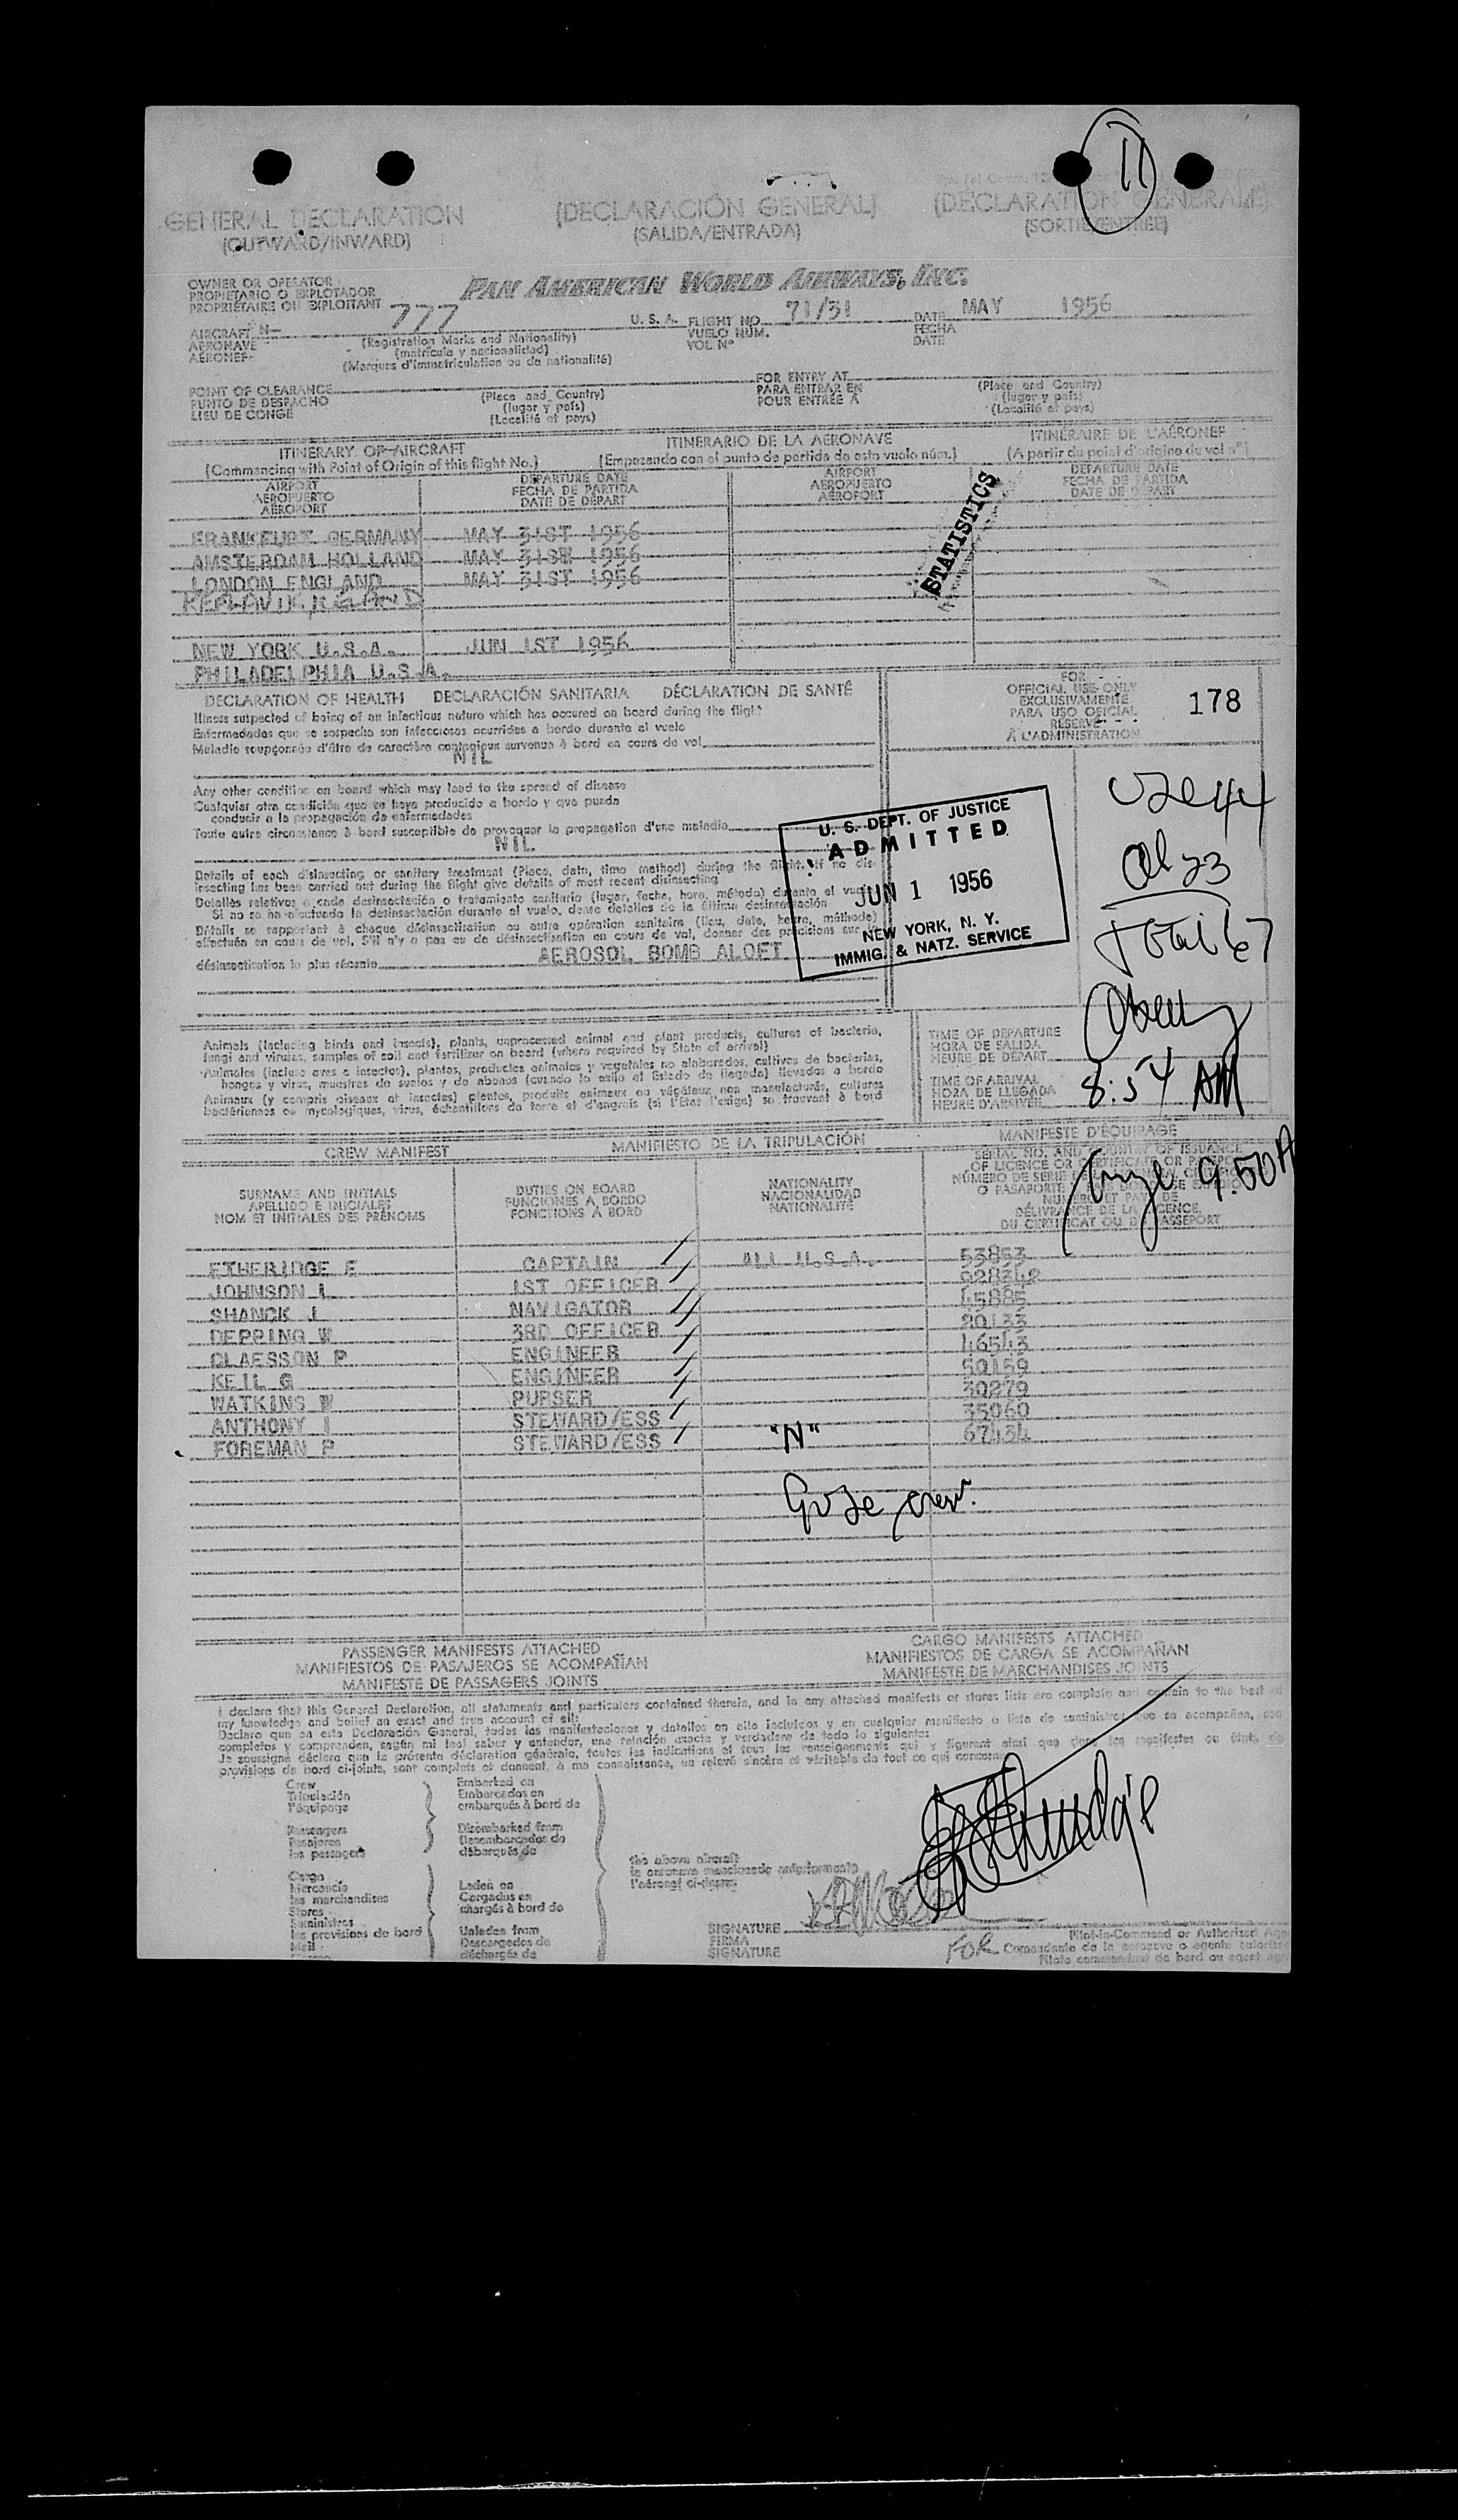 11
GENERAL DECLARATION
(OUTWARD/INWARD)
(DECLARACIÓN GENERAL)
(SALIDA/ENTRADA)
(DÉCLARATION GÉNÉRALE)
(SORTIE/ENTRÉE)
OWNER OR OPERATOR
PROPIETARIO O EXPLOTADOR
PROPRIÉTAIRE OU EXPLOITANT
PAN AMERICAN WORLD AIRWAYS, INC.
AIRCRAFT N— 777 U. S. A.
AERONAVE
AÉRONEF
(Registration Marks and Nationality)
(matrícula y nacionalidad)
(Marques d'immatriculation ou de nationalité)
FLIGHT NO. 71/31
VUELO NÚM.
VOL Nº
DATE MAY 1956
FECHA
DATE
POINT OF CLEARANCE
PUNTO DE DESPACHO
LIEU DE CONGÉ
(Place and Country)
(lugar y país)
(Localité et pays)
FOR ENTRY AT
PARA ENTRAR EN
POUR ENTRÉE A
(Place and Country)
(lugar y país)
(Localité et pays)
ITINERARY OF AIRCRAFT
(Commencing with Point of Origin of this flight No.)
ITINERARIO DE LA AERONAVE
(Empezando con el punto de partida de este vuelo núm.)
ITINÉRAIRE DE L'AÉRONEF
(A partir du point d'origine du vol nº)
AIRPORT
AEROPUERTO
AÉROPORT
DEPARTURE DATE
FECHA DE PARTIDA
DATE DE DÉPART
AIRPORT
AEROPUERTO
AÉROPORT
DEPARTURE DATE
FECHA DE PARTIDA
DATE DE DÉPART
FRANKFURT GERMANY MAY 31ST 1956
AMSTERDAM HOLLAND MAY 31ST 1956
LONDON ENGLAND MAY 31ST 1956
KEFLAVIK, ICELAND
NEW YORK U.S.A. JUN 1ST 1956
PHILADELPHIA U.S.A.
STATISTICS
DECLARATION OF HEALTH DECLARACIÓN SANITARIA DÉCLARATION DE SANTÉ
Illness suspected of being of an infectious nature which has occured on board during the flight
Enfermedades que se sospecha son infecciosas ocurridas a bordo durante el vuelo
Maladie soupçonnée d'être de caractère contagieux survenue à bord en cours de vol
NIL
Any other condition on board which may lead to the spread of disease
Cualquier otra condición que se haya producido a bordo y que pueda
conducir a la propagación de enfermedades
Toute autre circonstance à bord susceptible de provoquer la propagation d'une maladie
NIL
Details of each disinsecting or sanitary treatment (Place, date, time method) during the flight. If no dis-
insecting has been carried out during the flight give details of most recent disinsecting
Detalles relativos a cada desinsectación o tratamiento sanitario (lugar, fecha, hora, método) durante el vuelo
Si no se ha efectuado la desinsectación durante el vuelo, dense detalles de la última desinsectación
Détails se rapportant à chaque désinsectisation ou autre opération sanitaire (lieu, date, heure, méthode)
effectuée en cours de vol. S'il n'y a pas eu de désinsectisation en cours de vol, donner des précisions sur
désinsectisation la plus récente AEROSOL BOMB ALOFT
FOR
OFFICIAL USE ONLY
EXCLUSIVAMENTE
PARA USO OFICIAL
RÉSERVÉ
À L'ADMINISTRATION
178
U. S. DEPT. OF JUSTICE
ADMITTED
JUN 1 1956
NEW YORK, N. Y.
IMMIG. & NATZ. SERVICE
USC 44
Al 23
Total 67
Animals (including birds and insects), plants, unprocessed animal and plant products, cultures of bacteria,
fungi and viruses, samples of soil and fertilizer on board (where required by State of arrival)
Animales (incluso aves e insectos), plantas, productos animales y vegetales no elaborados, cultivos de bacterias,
hongos y virus, muestras de suelos y de abonos (cuando lo exija el Estado de llegada) llevados a bordo
Animaux (y compris oiseaux et insectes) plantes, produits animaux ou végétaux non manufacturés, cultures
bactériennes ou mycologiques, virus, échantillons de terre et d'engrais (si l'Etat l'exige) se trouvant à bord
TIME OF DEPARTURE
HORA DE SALIDA
HEURE DE DÉPART
TIME OF ARRIVAL
HORA DE LLEGADA
HEURE D'ARRIVÉE
8:54 AM
9:50A
CREW MANIFEST
MANIFIESTO DE LA TRIPULACIÓN
MANIFESTE D'ÉQUIPAGE
SURNAME AND INITIALS
APELLIDO E INICIALES
NOM ET INITIALES DES PRÉNOMS
DUTIES ON BOARD
FUNCIONES A BORDO
FONCTIONS A BORD
NATIONALITY
NACIONALIDAD
NATIONALITÉ
SERIAL NO. AND COUNTRY OF ISSUANCE
OF LICENCE OR CERTIFICATE OR PASSPORT
DÉLIVRANCE DE LA LICENCE,
DU CERTIFICAT OU DU PASSEPORT
ETHERIDGE E CAPTAIN ALL U.S.A. 53853
JOHNSON L 1ST OFFICER 928342
SHANCK J NAVIGATOR 45885
DEPPING W 3RD OFFICER 20133
CLAESSON P ENGINEER 46543
KEIL G ENGINEER 50159
WATKINS W PURSER 30279
ANTHONY I STEWARD/ESS 35060
FOREMAN P STEWARD/ESS "N" 67434
crew.
PASSENGER MANIFESTS ATTACHED
MANIFIESTOS DE PASAJEROS SE ACOMPAÑAN
MANIFESTE DE PASSAGERS JOINTS
CARGO MANIFESTS ATTACHED
MANIFIESTOS DE CARGA SE ACOMPAÑAN
MANIFESTE DE MARCHANDISES JOINTS
I declare that this General Declaration, all statements and particulars contained therein, and in any attached manifests or stores lists are complete and contain to the best of
my knowledge and belief an exact and true account of all:
Declaro que en esta Declaración General, todas las manifestaciones y detalles en ella incluidos y en cualquier manifiesto o lista de suministros que se acompañan, son
completos y comprenden, según mi leal saber y entender, una relación exacta y verdadera de todo lo siguiente:
Je soussigné déclare que la présente déclaration générale, toutes les indications et tous les renseignements qui y figurent ainsi que dans les manifestes ou états de
provisions de bord ci-joints, sont complets et donnent, à ma connaissance, un relevé sincère et véritable de tout ce qui concerne
Crew
Tripulación
l'équipage
Embarked on
Embarcados en
embarqués à bord de
Passengers
Pasajeros
les passagers
Disembarked from
Desembarcados de
débarqués de
Cargo
Mercancía
les marchandises
Stores
Suministros
les provisions de bord
Mail
Laden on
Cargados en
chargés à bord de
Unladen from
Descargados de
déchargés de
the above aircraft
la aeronave mencionada anteriormente
l'aéronef ci-dessus
SIGNATURE
FIRMA
SIGNATURE
FOR
Pilot-in-Command or Authorized Age
Comandante de la aeronave o agente autoriza
Pilote commandant de bord ou agent agré